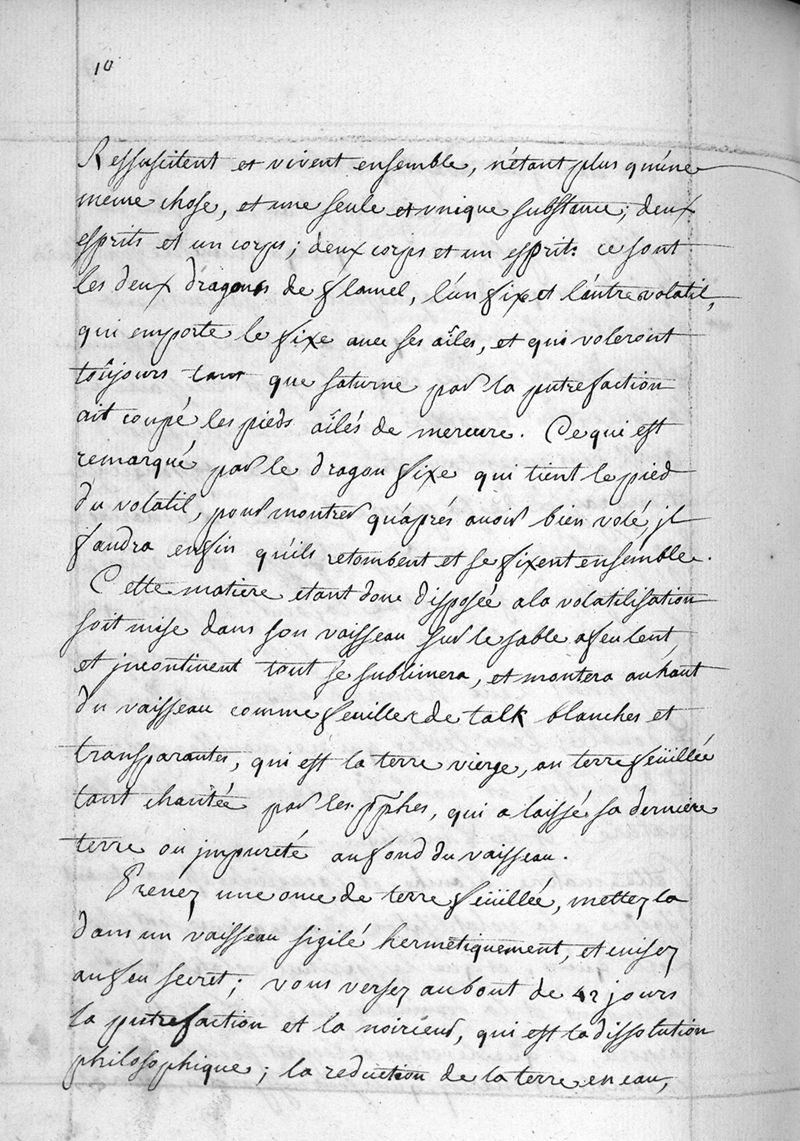 10
Ressuscitent et vivent ensemble, n'etant plus qu'une
meme chose, et une seule et unique substance; deux
esprits et un corps; deux corps et un esprit: ce sont
les deux dragons de flamel, l'un fixe et l'autre volatil,
qui emporte le fixe avec ses aîles, et qui voleront
toûjours tant que saturne par la putrefaction
ait coupé les pieds aîlés de mercure. Ce qui est
remarqué par le dragon fixe qui tient le pied
du volatil, pour montrer qu'aprés avoir bien volé, jl
faudra enfin qu'ils retombent et se fixent ensemble.
Cette matiere etant donc disposée a la volatilisation
soit mise dans son vaisseau sur le sable a feu lent,
et jncontinent tout se sublimera, et montera au haut
du vaisseau comme feuilles de talk blanches et
transparantes, qui est la terre vierge, ou terre feüillée
tant chantée par les pphes, qui a laissé sa derniere
terre ou jmpureté au fond du vaisseau.
Prenez une once de terre feüillée, mettez la
dans un vaisseau sigilé hermetiquement, et cuisez
au feu secret; vous verrez au bout de 42 jours
la putrefaction et la noirceur, qui est la dissolution
philosophique; la reduction de la terre en eau,